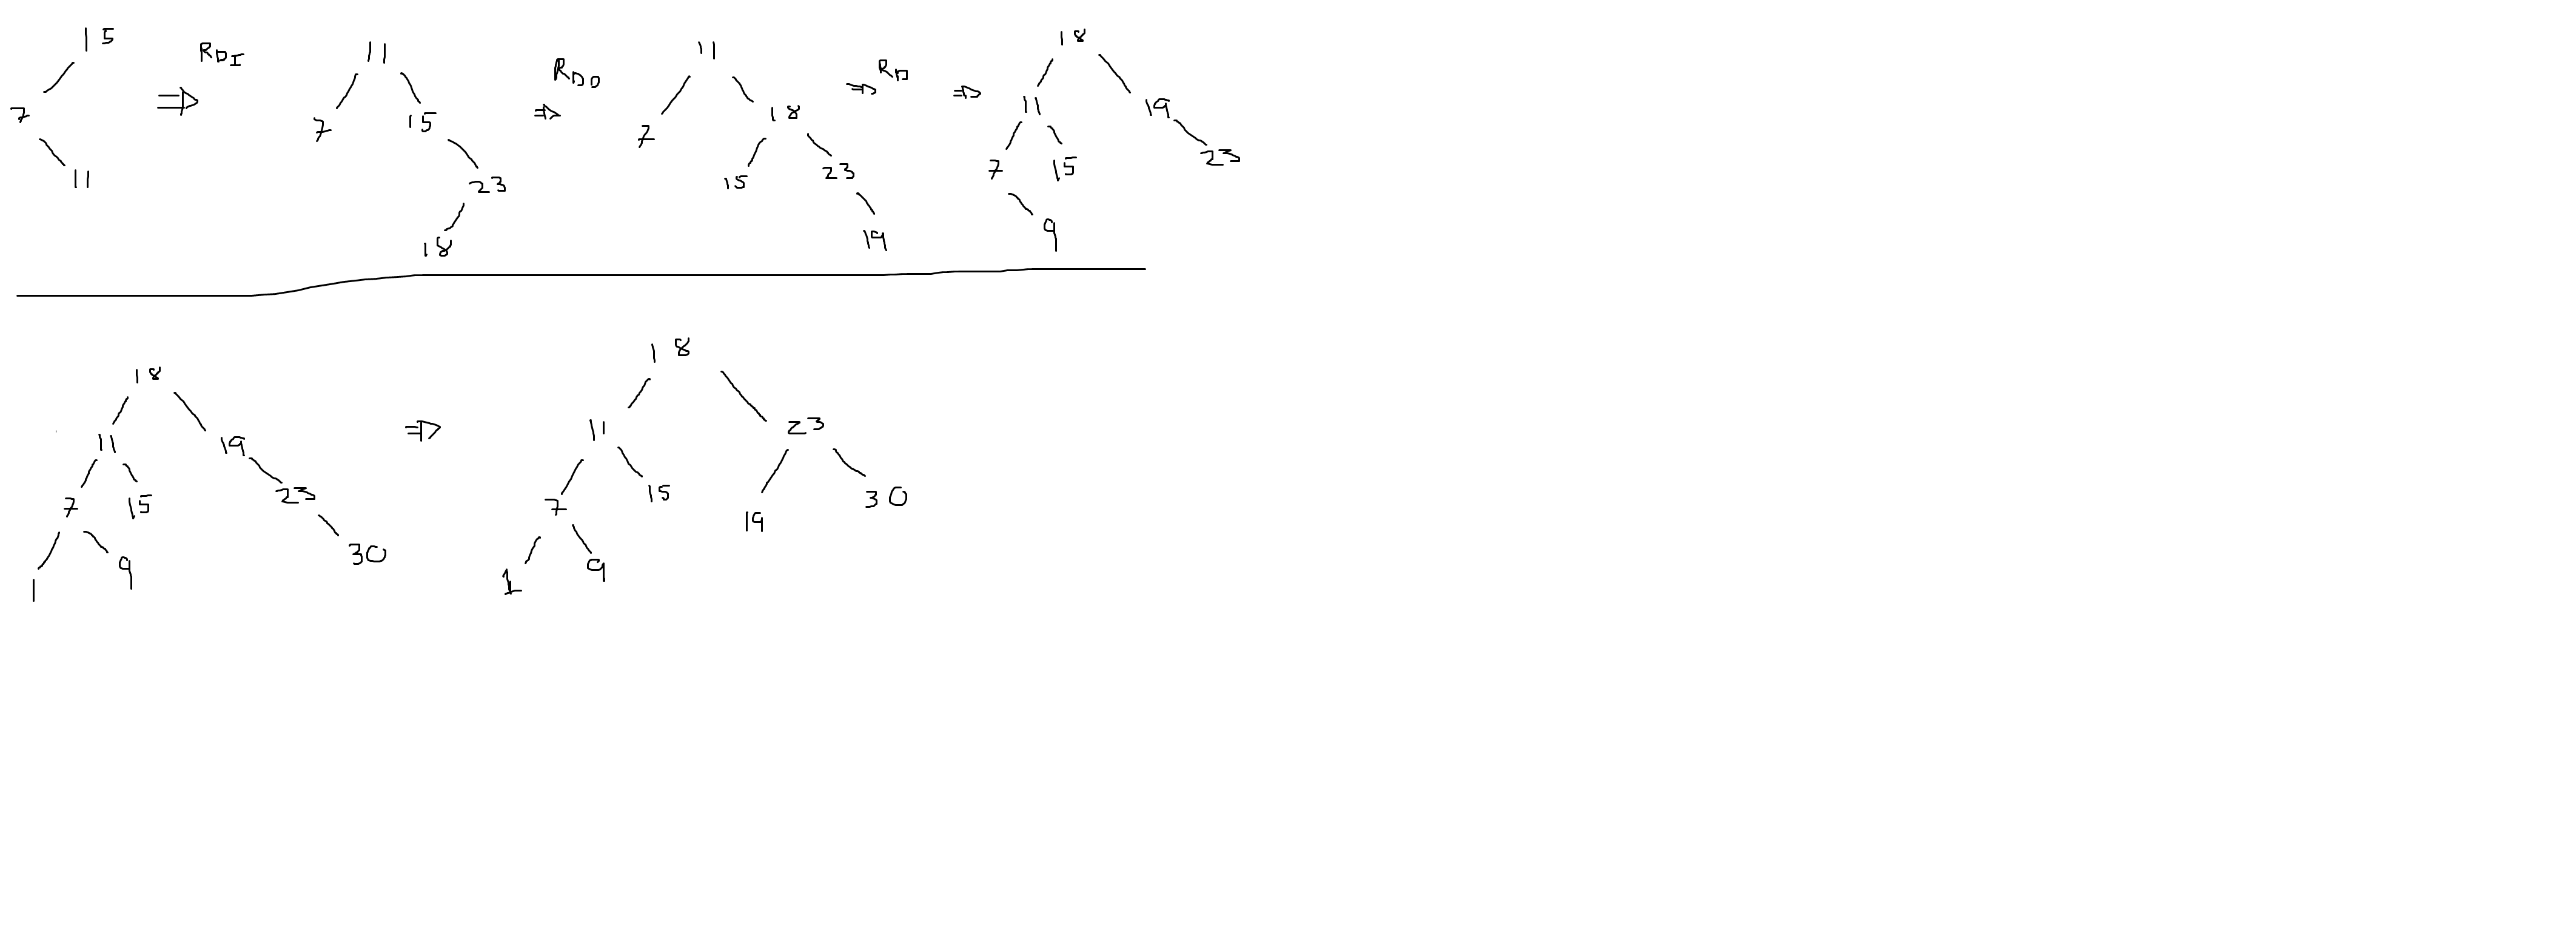 15
7
11
⇒ RDI
11
7 15
23
18
⇒ RDD
11
7 18
15 23
19
⇒ RD ⇒
18
11 19
7 15 23
9
18
11 19
7 15 23
1 9 30
⇒
18
11 23
7 15 19 30
1 9